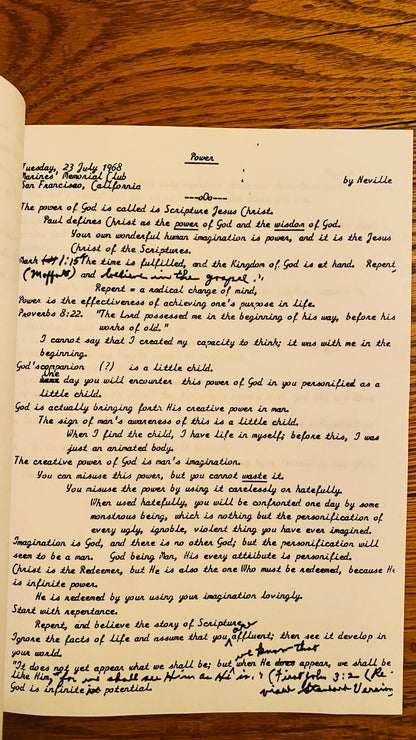 Power
Tuesday, 23 July 1968
Marines' Memorial Club
San Francisco, California
by Neville
---oOo---
The power of God is called is Scripture Jesus Christ.
Paul defines Christ as the power of God and the wisdom of God.
Your own wonderful human imagination is power, and it is the Jesus
Christ of the Scripture.
Mark 1:15 The time is fulfilled, and the Kingdom of God is at hand. Repent,
(Moffatt) and believe in the gospel.".
Repent = a radical change of mind,
Power is the effectiveness of achieving one's purpose in life.
Proverbs 8:22. "The Lord possessed me in the beginning of his way, before his
works of old."
I cannot say that I created my capacity to think; it was with me in the
beginning.
God's companion (?) is a little child.
One day you will encounter this power of God in you personified as a
little child.
God is actually bringing forth His creative power in man.
The sign of man's awareness of this is a little child.
When I find the child, I have life in myself; before this, I was
just an animated body.
The creative power of God is man's imagination.
You can misuse this power, but you cannot waste it.
You misuse the power by using it carelessly or hatefully.
When used hatefully, you will be confronted one day by some
monstrous being, which is nothing but the personification of
every ugly, ignoble, violent thing you have ever imagined.
Imagination is God, and there is no other God; but the personification will
seem to be a man. God being Man, His every attribute is personified.
Christ is the Redeemer, but He is also the one Who must be redeemed, because He
is infinite power.
He is redeemed by your using your imagination lovingly.
Start with repentance.
Repent, and believe the story of Scripture.
Ignore the facts of life and assume that you are affluent; then see it develop in
your world.
"It does not yet appear what we shall be; but we know that when He does appear, we shall be
like Him, for we shall see Him as He is." (First John 3:2 (Re-
God is infinite potential. vised Standard Version